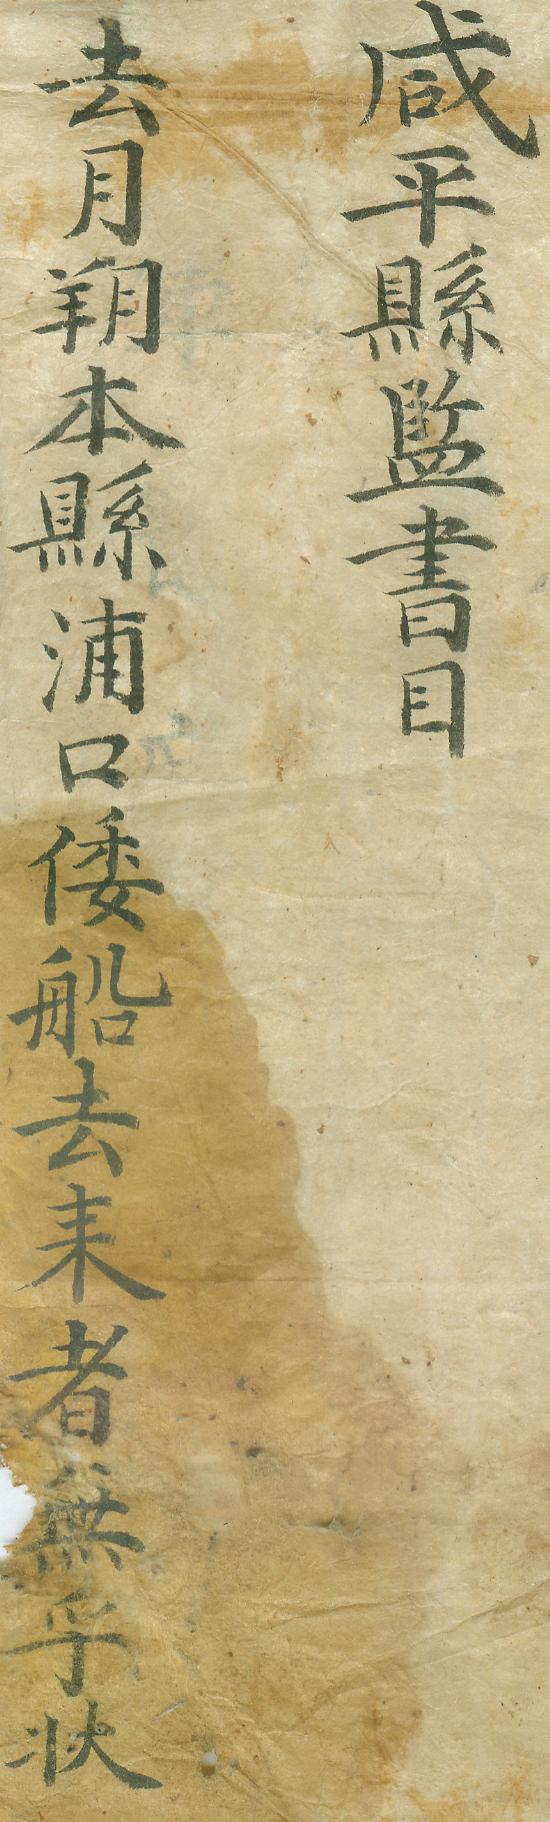 咸平縣監書目
去月朔本縣浦口倭船去来者無乎状